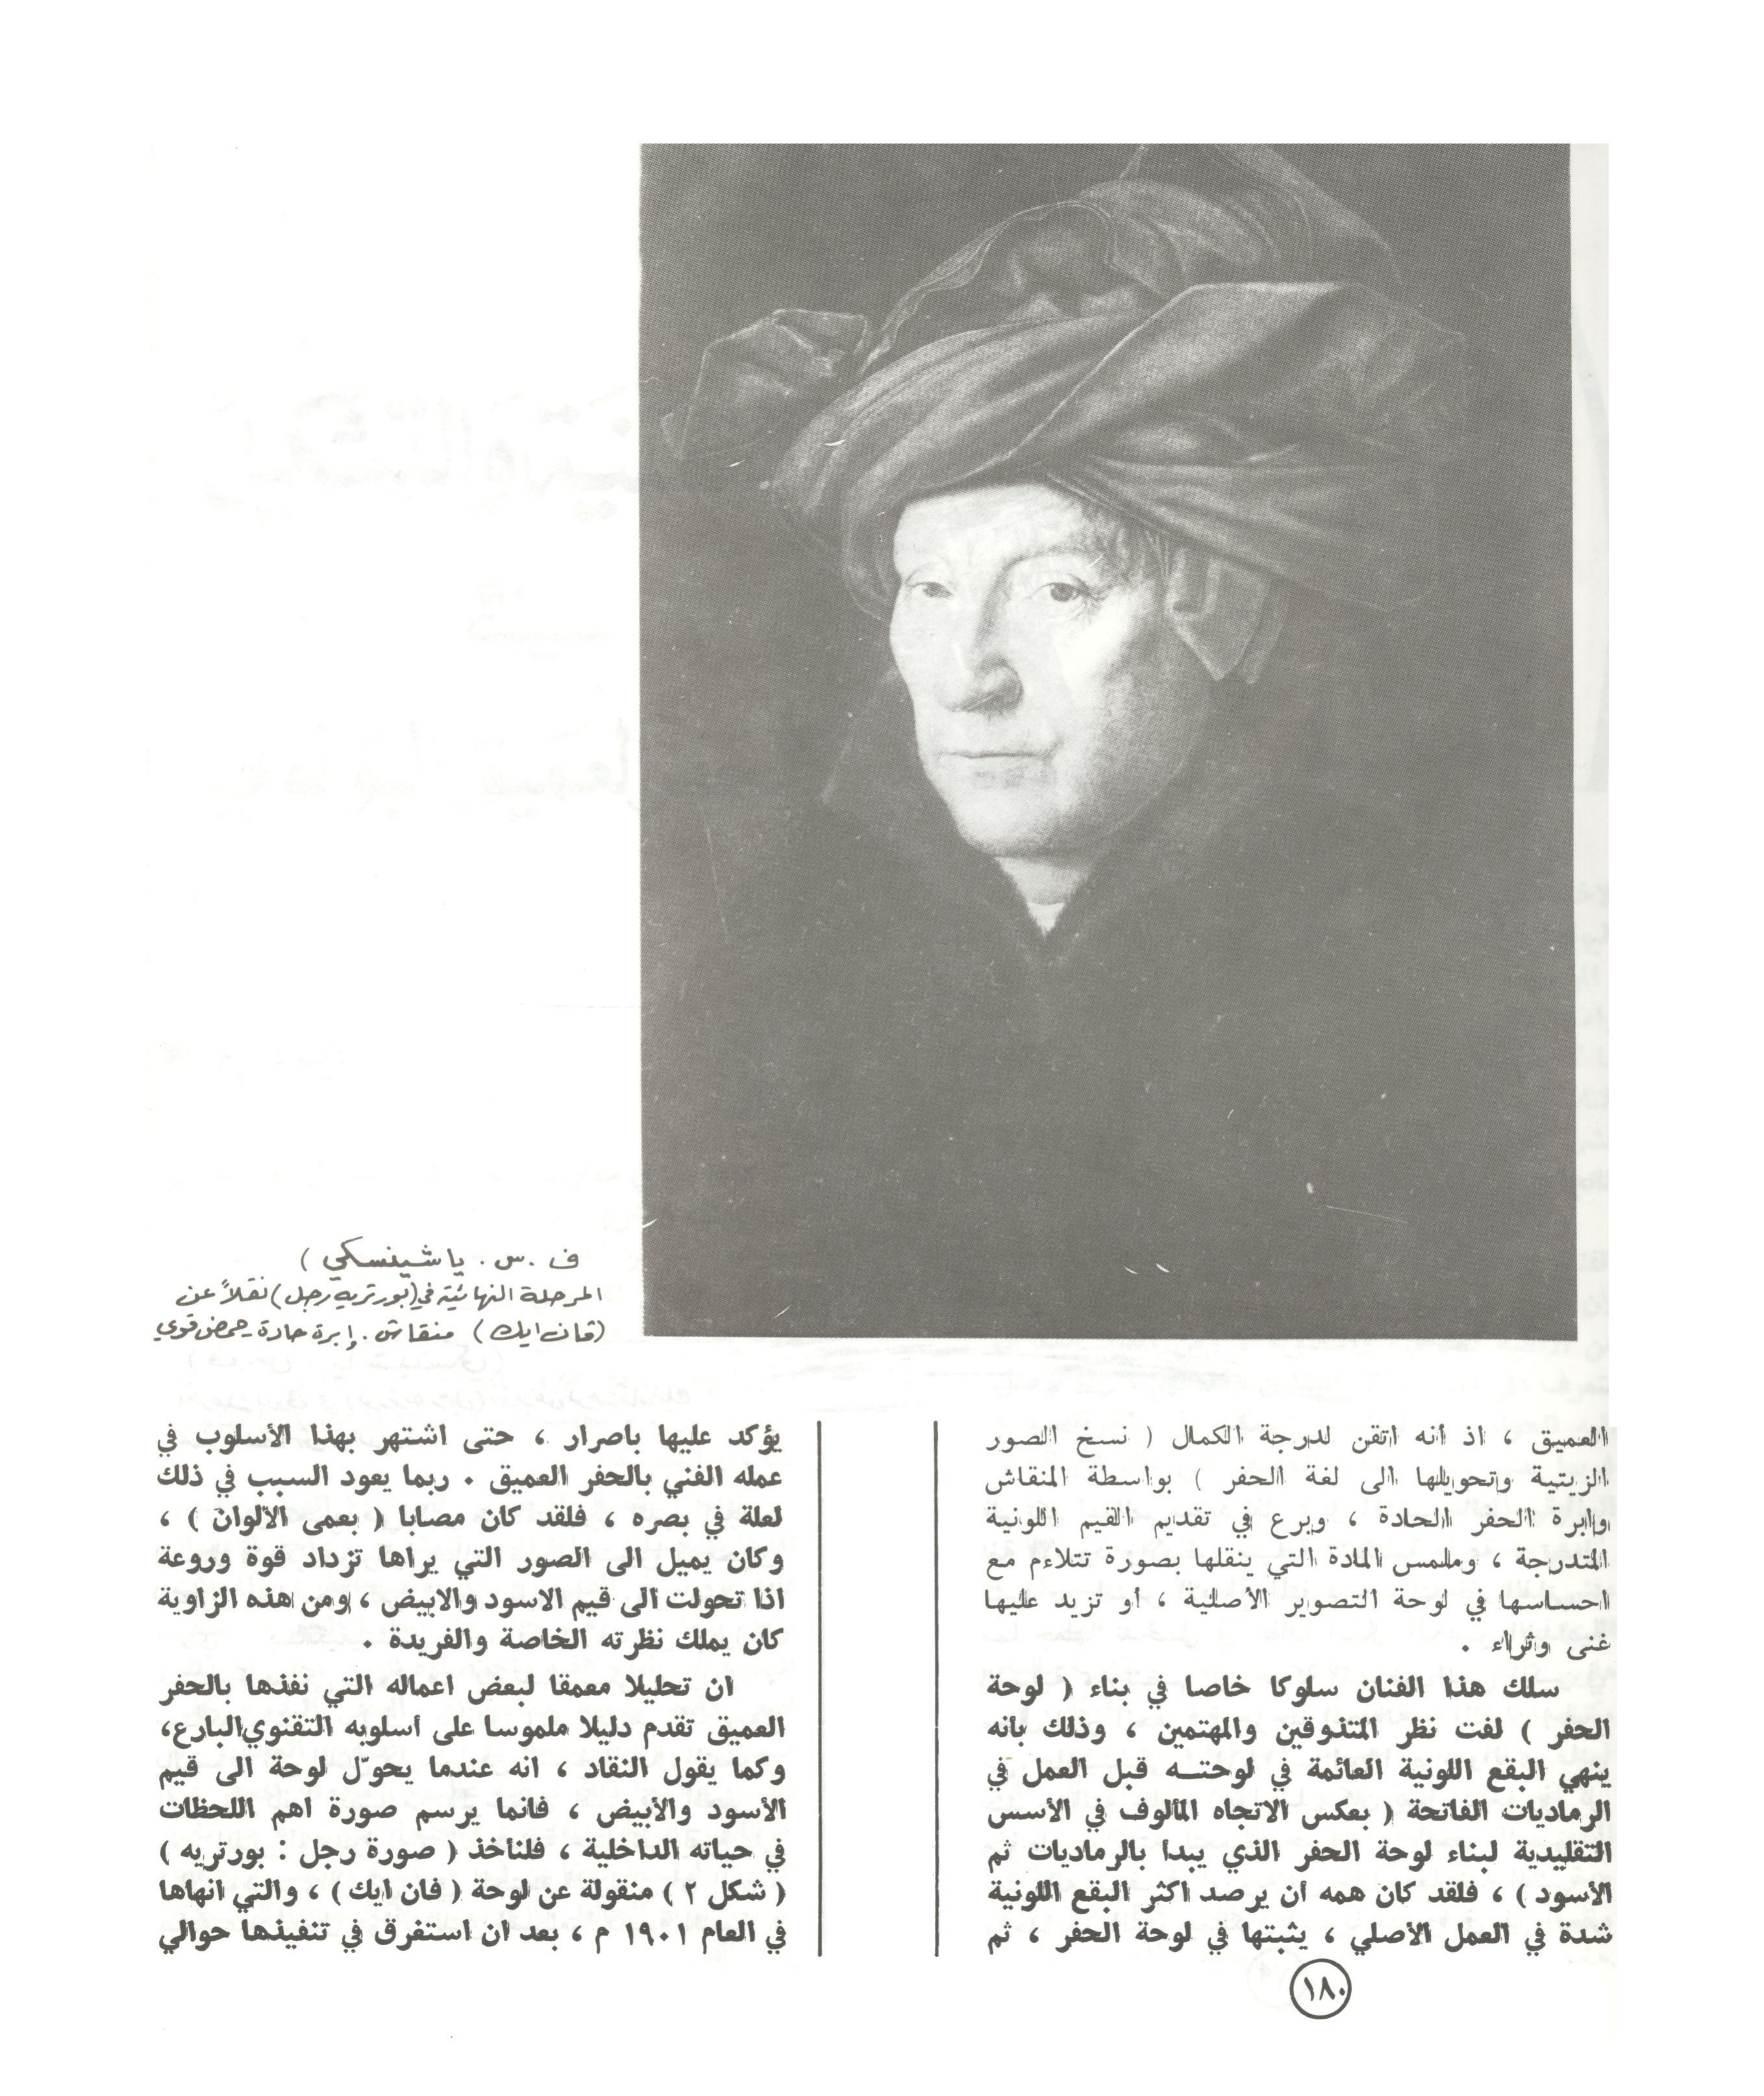 ف . س . ياشينسكي )
المرحلة النهائية في (بورتريه رجل) نقلاً عن
(فان ايك) منقاش . إبرة حادة - حمض قوي
العميق ، اذ أنه اتقن لدرجة الكمال ( نسخ الصور
الزيتية وتحويلها الى لغة الحفر ) بواسطة المنقاش
وابرة الحفر الحادة ، وبرع في تقديم القيم اللونية
المتدرجة ، وملمس المادة التي ينقلها بصورة تتلاءم مع
احساسها في لوحة التصوير الأصلية ، أو تزيد عليها
غنى وثراء .
سلك هذا الفنان سلوكا خاصا في بناء ( لوحة
الحفر ) لفت نظر المتذوقين والمهتمين ، وذلك بأنه
ينهي البقع اللونية العائمة في لوحتـه قبل العمل في
الرماديات الفاتحة ( بعكس الاتجاه المألوف في الأسس
التقليدية لبناء لوحة الحفر الذي يبدأ بالرماديات ثم
الأسود ) ، فلقد كان همه أن يرصد أكثر البقع اللونية
شدة في العمل الأصلي ، يثبتها في لوحة الحفر ، ثم
يؤكد عليها باصرار ، حتى اشتهر بهذا الأسلوب في
عمله الفني بالحفر العميق . ربما يعود السبب في ذلك
لعلة في بصره ، فلقد كان مصابا ( بعمى الألوان ) ،
وكان يميل الى الصور التي يراها تزداد قوة وروعة
اذا تحولت الى قيم الاسود والابيض ، ومن هذه الزاوية
كان يملك نظرته الخاصة والفريدة .
ان تحليلا معمقا لبعض اعماله التي نفذها بالحفر
العميق تقدم دليلا ملموسا على أسلوبه التقنوي البارع،
وكما يقول النقاد ، انه عندما يحوّل لوحة الى قيم
الأسود والأبيض ، فانما يرسم صورة اهم اللحظات
في حياته الداخلية ، فلنأخذ ( صورة رجل : بورتريه )
( شكل ٢ ) منقولة عن لوحة ( فان ايك ) ، والتي انهاها
في العام ١٩٠١ م ، بعد ان استغرق في تنفيذها حوالي
١٨٠